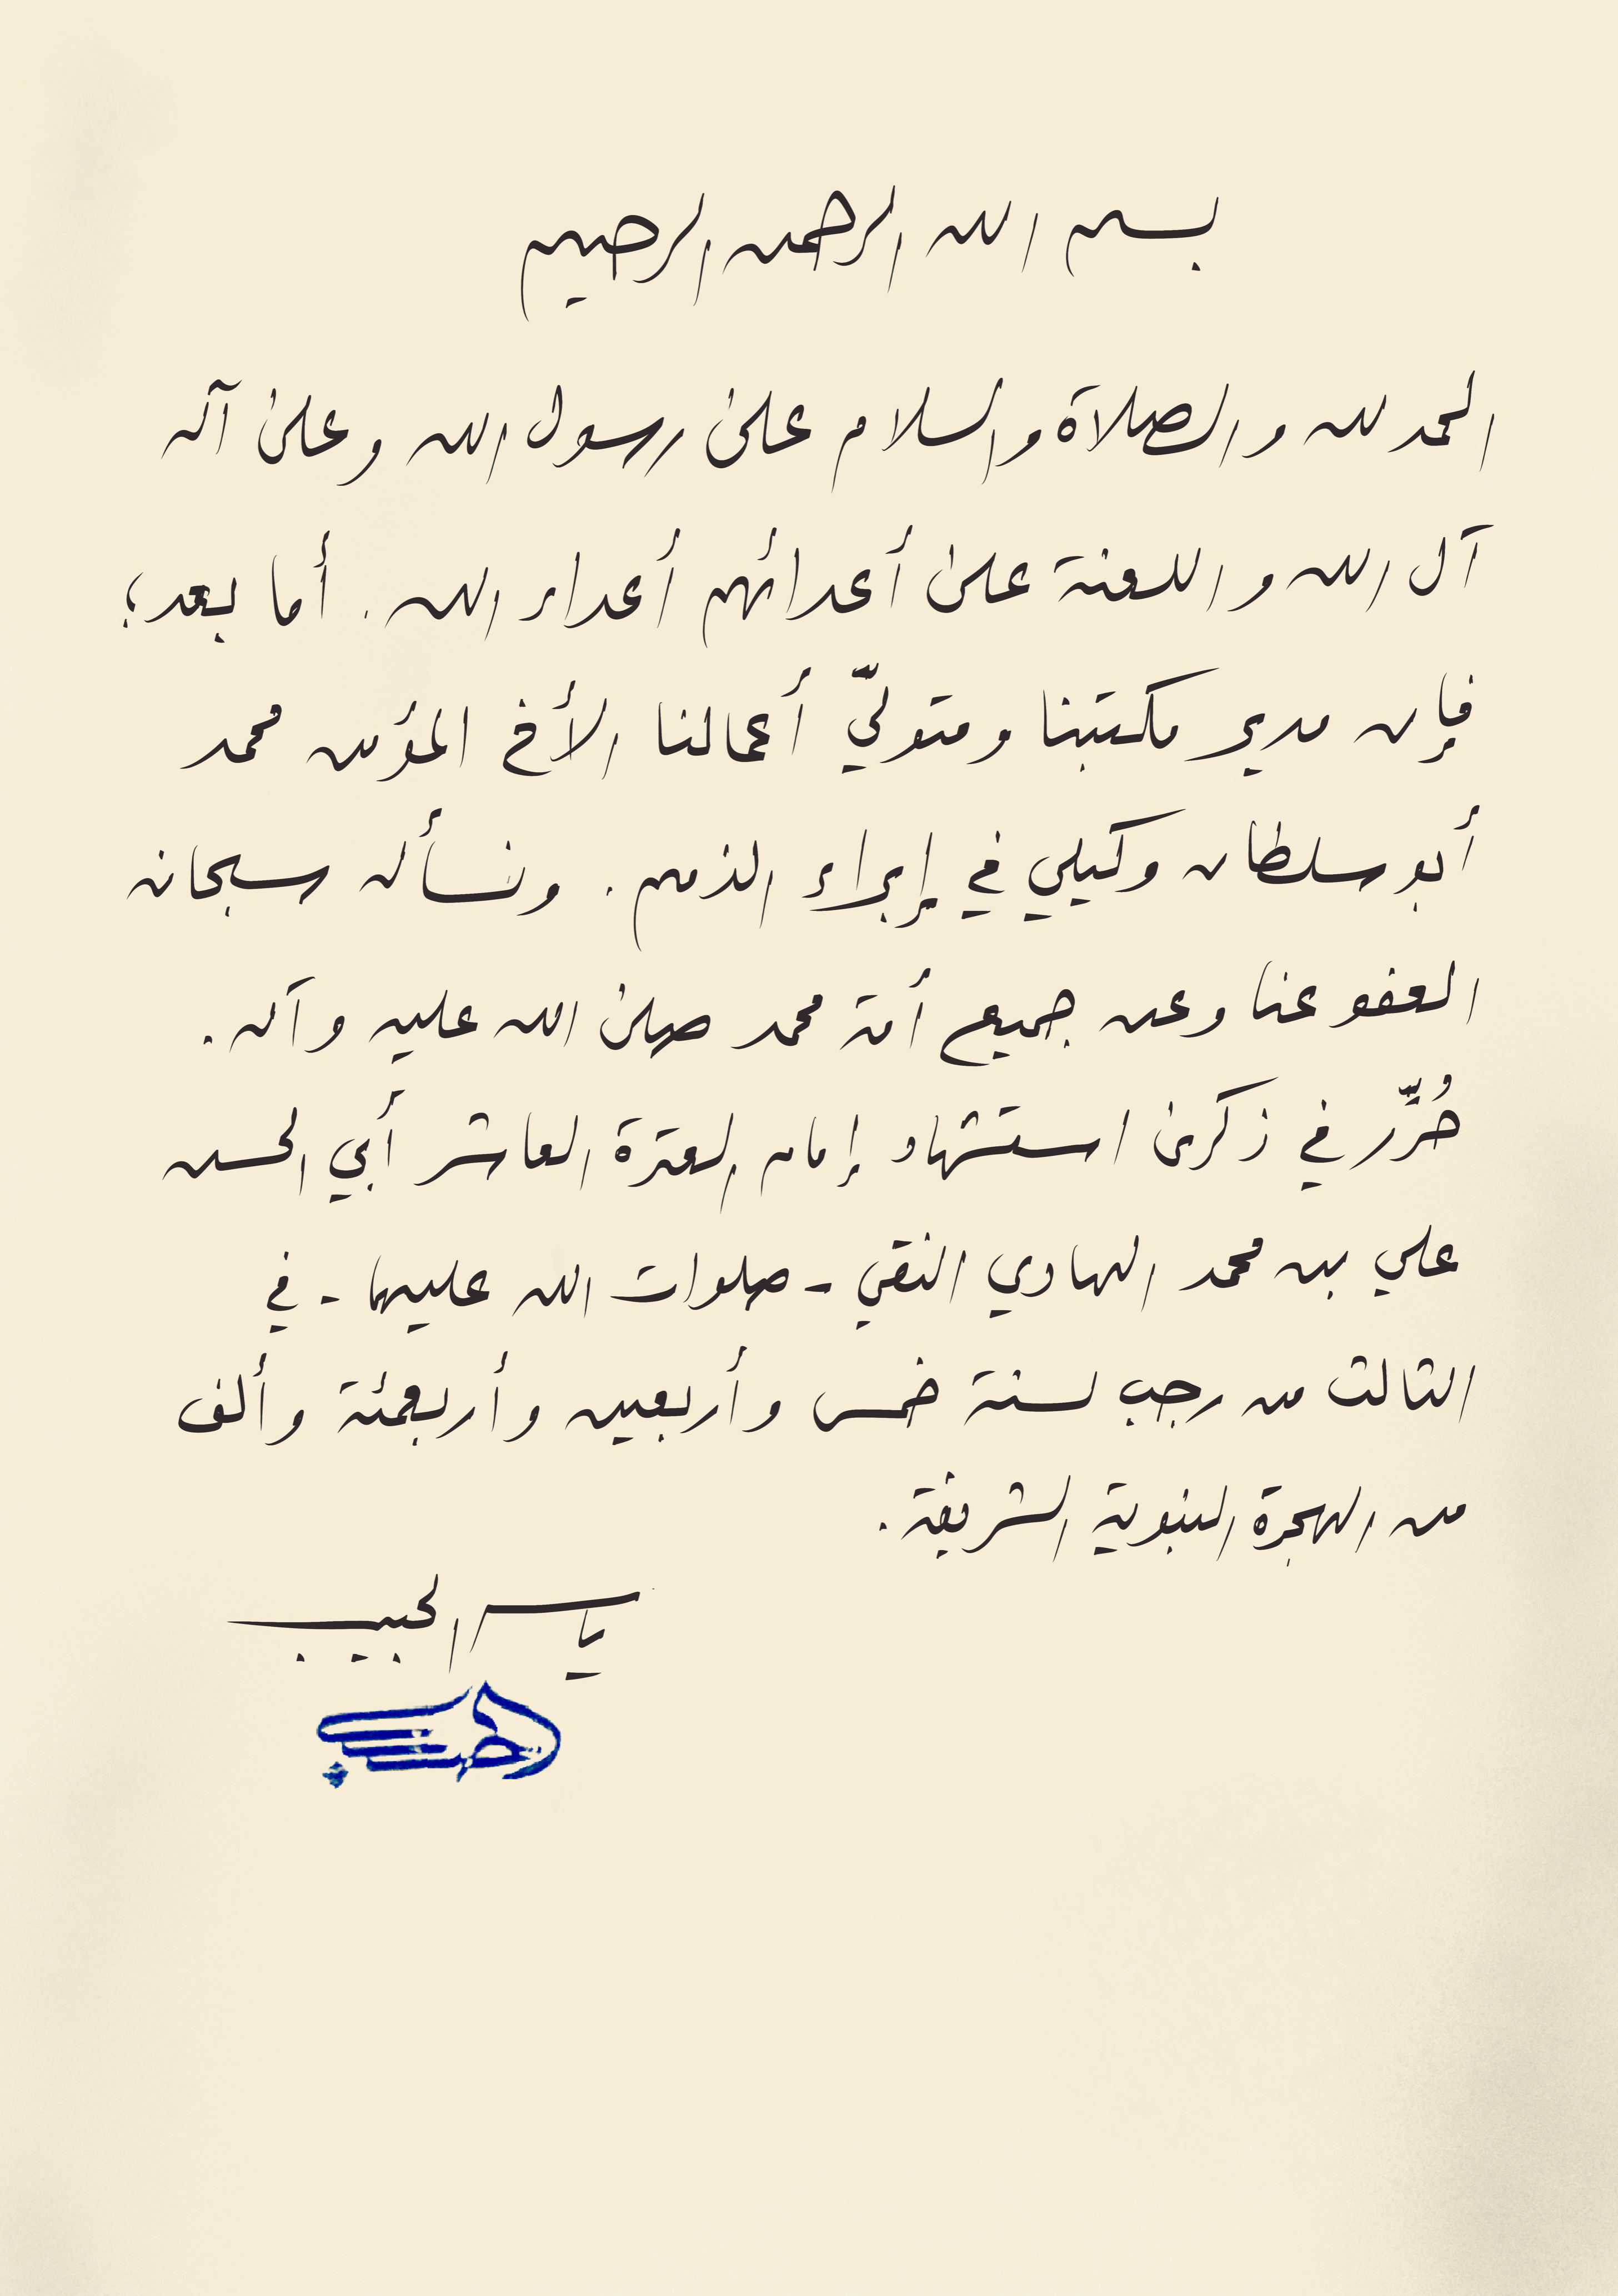 بسم الله الرحمن الرحيم
الحمد لله والصلاة والسلام على رسول الله وعلى آله
آل الله واللعنة على أعدائهم أعداء الله. أما بعد؛
فإن مدير مكتبنا ومتولّي أعمالنا الأخ المؤمن محمد
أبو سلطان وكيلي في إبراء الذمم. ونسأله سبحانه
العفو عنا وعن جميع أمة محمد صلى الله عليه وآله.
حُرِّر في ذكرى استشهاد إمام العترة العاشر أبي الحسن
علي بن محمد الهادي النقي - صلوات الله عليهما - في
الثالث من رجب لسنة خمس وأربعين وأربعمئة وألف
من الهجرة النبوية الشريفة.
ياسر الحبيب
الحبيب